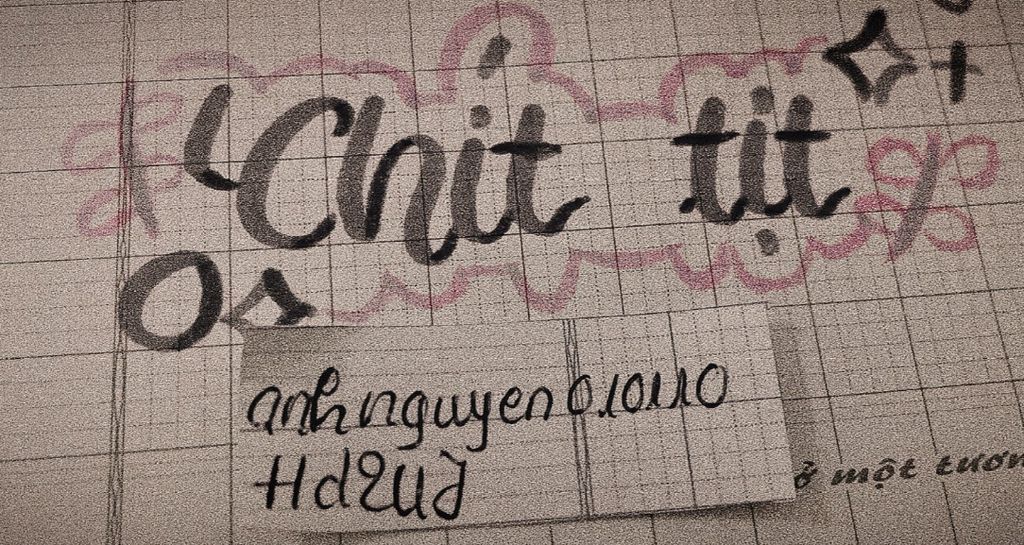 Chít tịt
anhnguyen0.10.1.10
ở một tươn